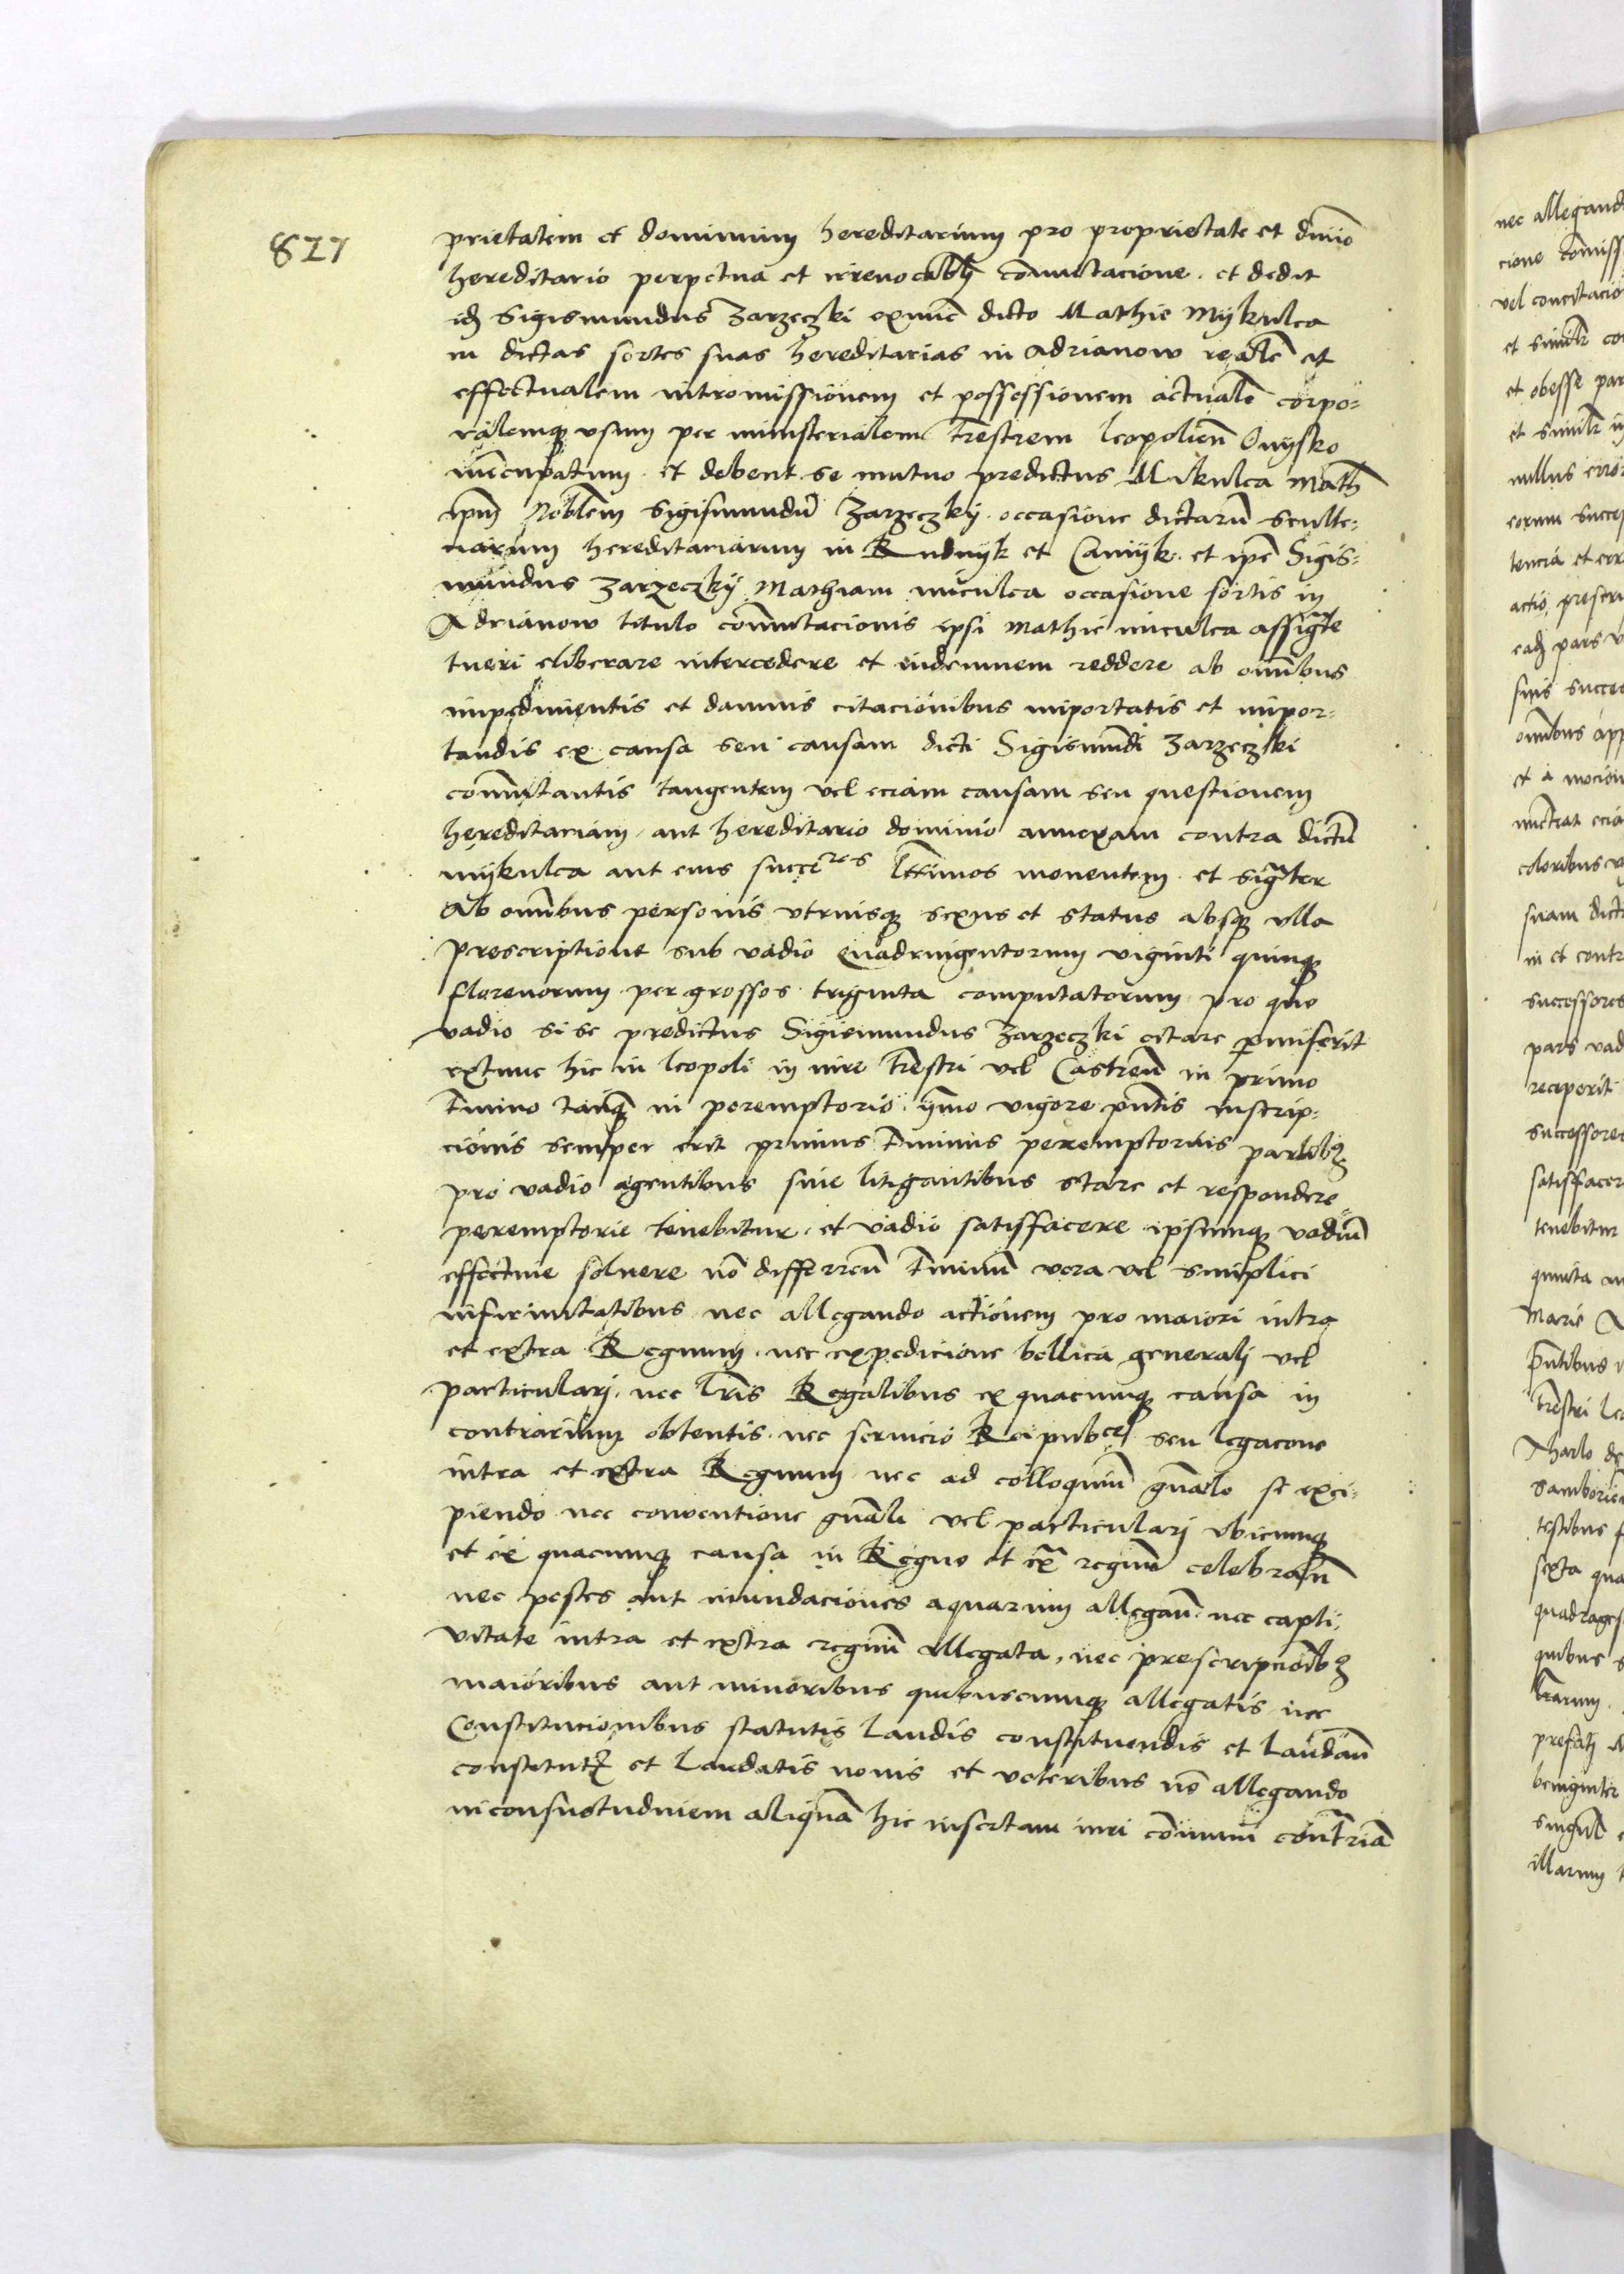 821
prietatem et dominium hereditarium pro proprietate et dmīo
hereditario perpetua et irreuocabłi comutacione . et dedit
idē Sigismundus Zarzeczki exnūc dicto Mathie Mykulca
in dictas sortes suas hereditarias in Adrianow realē et
effectualem intromissionem et possessionem actualē corpo=
ralemq vsum per ministerialem Trestrem leopolieñ Onysko
nūcupatum . et debent se mutuo predictus Mikulca Math
ipm Noblem Sigismundū Zarzeczky occasione dictarū sculte=
narum hereditariarum in Rudnyk et Camyk . et ipē Sigis=
mundus Zarzeczky Mathiam miculca occasione sortis in
Adrianow titulo comutacionis ipsi Mathie miculca assigte
tueri eliberare intercedere et indemnem reddere ab omībus
impedimentis et damnis citacionibus importatis et impor=
tandis ex causa seu causam dicti Sigismūdi Zarzeczki
comutantis tangentem vel eciam causam seu questionem
hereditariam aut hereditario dominio annexam contra dictū
mykulca aut eius succeres lttīmos monentem . et sigłter
Ab omībus personis vtriusq sexus et status absq vlla
prescriptione sub vadio quadringentorum viginti quinq
florenorum per grossos triginta computatorum pro quo
vadio si se predictus Sigismundus Zarzeczki citare pmiserit
extunc hic in leopoli in iure Trestri vel Castreñ in primo
Tmino tanq in peremptorio ymo vigore pntis inscrip=
cionis semper erit primus Tminus peremptorius partibz
pro vadio agentibus siue litigantibus stare et respondere
peremptorie tenebitur et vadio satisfacere ipsumq vadiū
effectiue soluere nō differreñ Tminū vera vel simplici
infirmitatibus nec allegando actionem pro maiori intra
et extra Regnum . nec expedicione bellica generalj vel
particularj . nec lris Regalibus ex quacumq causa in
contrarium obtentis . nec seruicio Reipubce seu legacone
intra et extra Regnum nec ad colloquiū gnalo se exci=
piendo nec conuentione gnali vel particularj vbicumq
et ex quacumq causa in Regno et exa regnū celebrañ
nec pestes aut inundaciones aquarum allegañ . nec capti=
vitate intra et extra regnū allegata , nec prescripcoibz
maioribus aut minoribus quibuscumq allegatis nec
Constitucionibus statutis laudis constituendis et laudañ
constitutz et laudatis nouis et veteribus nō allegando
inconsuetudinem aliquā hic insertam iuri cōmuni contrriā
nec allegand
cione comiss
vel concitacio
et similr co
et obesse par
et similr
nullus error
eorum succes
tencia et err
actio prescri
eadz pars v
suis succes
omībus app
et a mocion
nuctrat ecia
coloribus v
suam dict
in et contr
successores
pars vad
reciperit
successores
satisfacer
tenebitur
quinta
Marie
pntibus
Trestri leo
Tharlo de
Samborieñ
testibus
sexta qua
quadrages
quibus s
lrarum
prefatj M
benigniter
singul
illarum